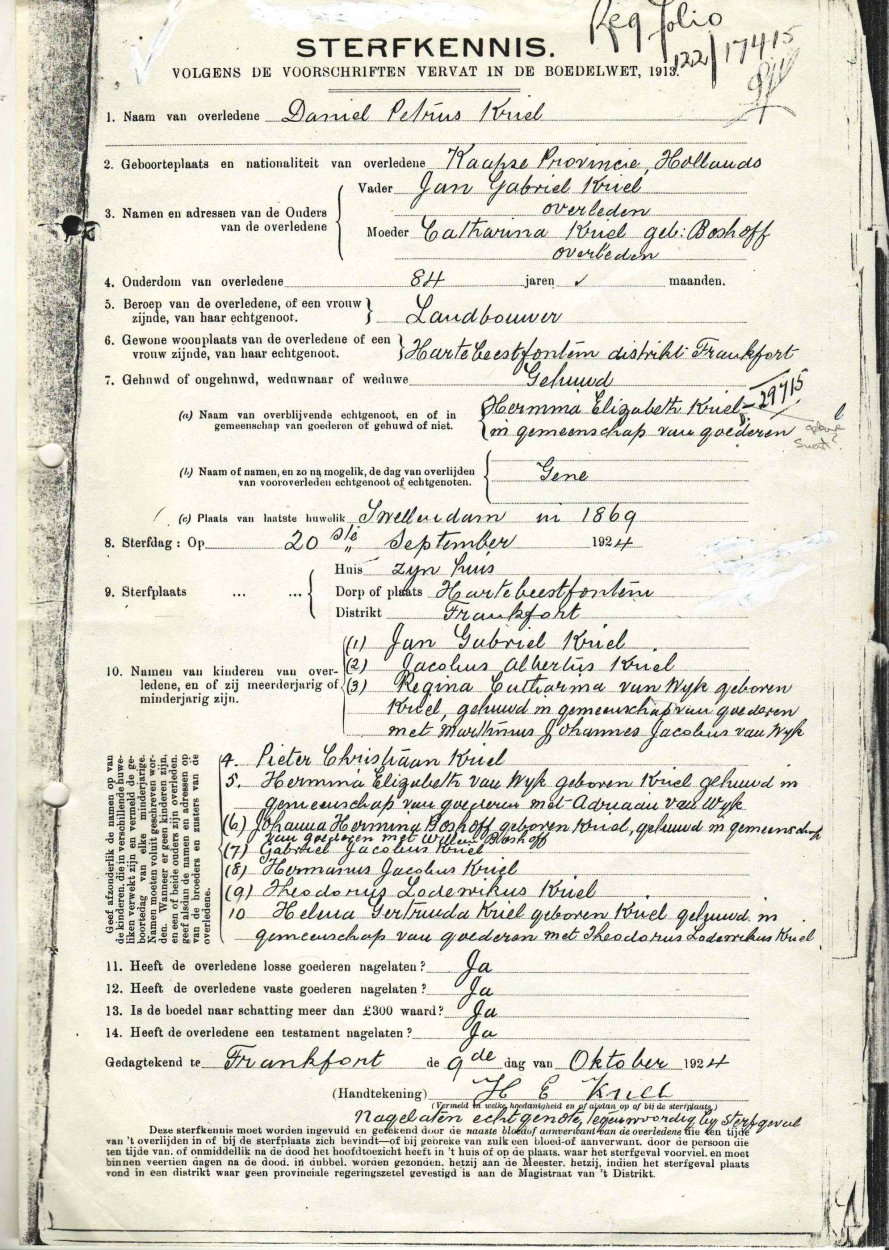 Reg Folio
122/17415
STERFKENNIS.
VOLGENS DE VOORSCHRIFTEN VERVAT IN DE BOEDELWET, 1913.
1. Naam van overledene Daniel Petrus Kriel
2. Geboorteplaats en nationaliteit van overledene Kaapse Provincie, Hollands
3. Namen en adressen van de Ouders van de overledene
Vader Jan Gabriel Kriel
overleden
Moeder Catharina Kriel geb: Boshoff
overleden
4. Ouderdom van overledene 84 jaren maanden.
5. Beroep van de overledene, of een vrouw
zijnde, van haar echtgenoot. Landbouwer
6. Gewone woonplaats van de overledene of een
vrouw zijnde, van haar echtgenoot. Hartebeestfontein distrikt Frankfort
7. Gehuwd of ongehuwd, weduwnaar of weduwe Gehuwd
(a) Naam van overblijvende echtgenoot, en of in
gemeenschap van goederen of gehuwd of niet.
Hermina Elizabeth Kriel - 29715
in gemeenschap van goederen
(b) Naam of namen, en zo na mogelik, de dag van overlijden
van vooroverleden echtgenoot of echtgenoten. Gene
(c) Plaats van laatste huwelik Swellendam in 1869
8. Sterfdag: Op 20ste September 1924
9. Sterfplaats ... ...
Huis zyn huis
Dorp of plaats Hartebeestfontein
Distrikt Frankfort
10. Namen van kinderen van over-
ledene, en of zij meerderjarig of
minderjarig zijn.
(1) Jan Gabriel Kriel
(2) Jacobus Albertus Kriel
(3) Regina Catharina van Wyk geboren
Kriel, gehuwd in gemeenschap van goederen
met Marthinus Johannes Jacobus van Wyk
Geef afzonderlik de namen op van
de kinderen, die in verschillende huwe-
liken verwekt zijn en vermeld de ge-
boortedag van elke minderjarige.
Namen moeten voluit geschreven wor-
den. Wanneer er geen kinderen zijn,
en een of beide ouders zijn overleden,
geef alsdan de namen en adressen op
van de broeders en zusters van de
overledene.
4. Pieter Christiaan Kriel
5. Hermina Elizabeth van Wyk geboren Kriel gehuwd in
gemeenschap van goederen met Adriaan van Wyk
(6) Johanna Hermina Boshoff geboren Kriel, gehuwd in gemeenschap
van goederen met Willem Boshoff
(7) Gabriel Jacobus Kriel
(8) Hermanus Jacobus Kriel
(9) Theodorus Lodewikus Kriel
10 Helena Gertruida Kriel geboren Kriel gehuwd in
gemeenschap van goederen met Theodorus Lodewikus Kriel
11. Heeft de overledene losse goederen nagelaten? Ja
12. Heeft de overledene vaste goederen nagelaten? Ja
13. Is de boedel naar schatting meer dan £300 waard? Ja
14. Heeft de overledene een testament nagelaten? Ja
Gedagtekend te Frankfort de 9de dag van Oktober 1924
(Handtekening) H E Kriel
(Vermeld in welke hoedanigheid en of alsdan op of bij de sterfplaats.)
Nagelaten echtgenote, tegenwoordig by sterfgeval
Deze sterfkennis moet worden ingevuld en getekend door de naaste bloed- of aanverwant van de overledene die ten tijde
van 't overlijden in of bij de sterfplaats zich bevindt—of bij gebreke van zulk een bloed- of aanverwant, door de persoon die
ten tijde van, of onmiddellik na de dood het hoofdtoezicht heeft in 't huis of op de plaats, waar het sterfgeval voorviel, en moet
binnen veertien dagen na de dood, in dubbel, worden gezonden, hetzij aan de Meester, hetzij, indien het sterfgeval plaats
vond in een distrikt waar geen provinciale regeringszetel gevestigd is aan de Magistraat van 't Distrikt.